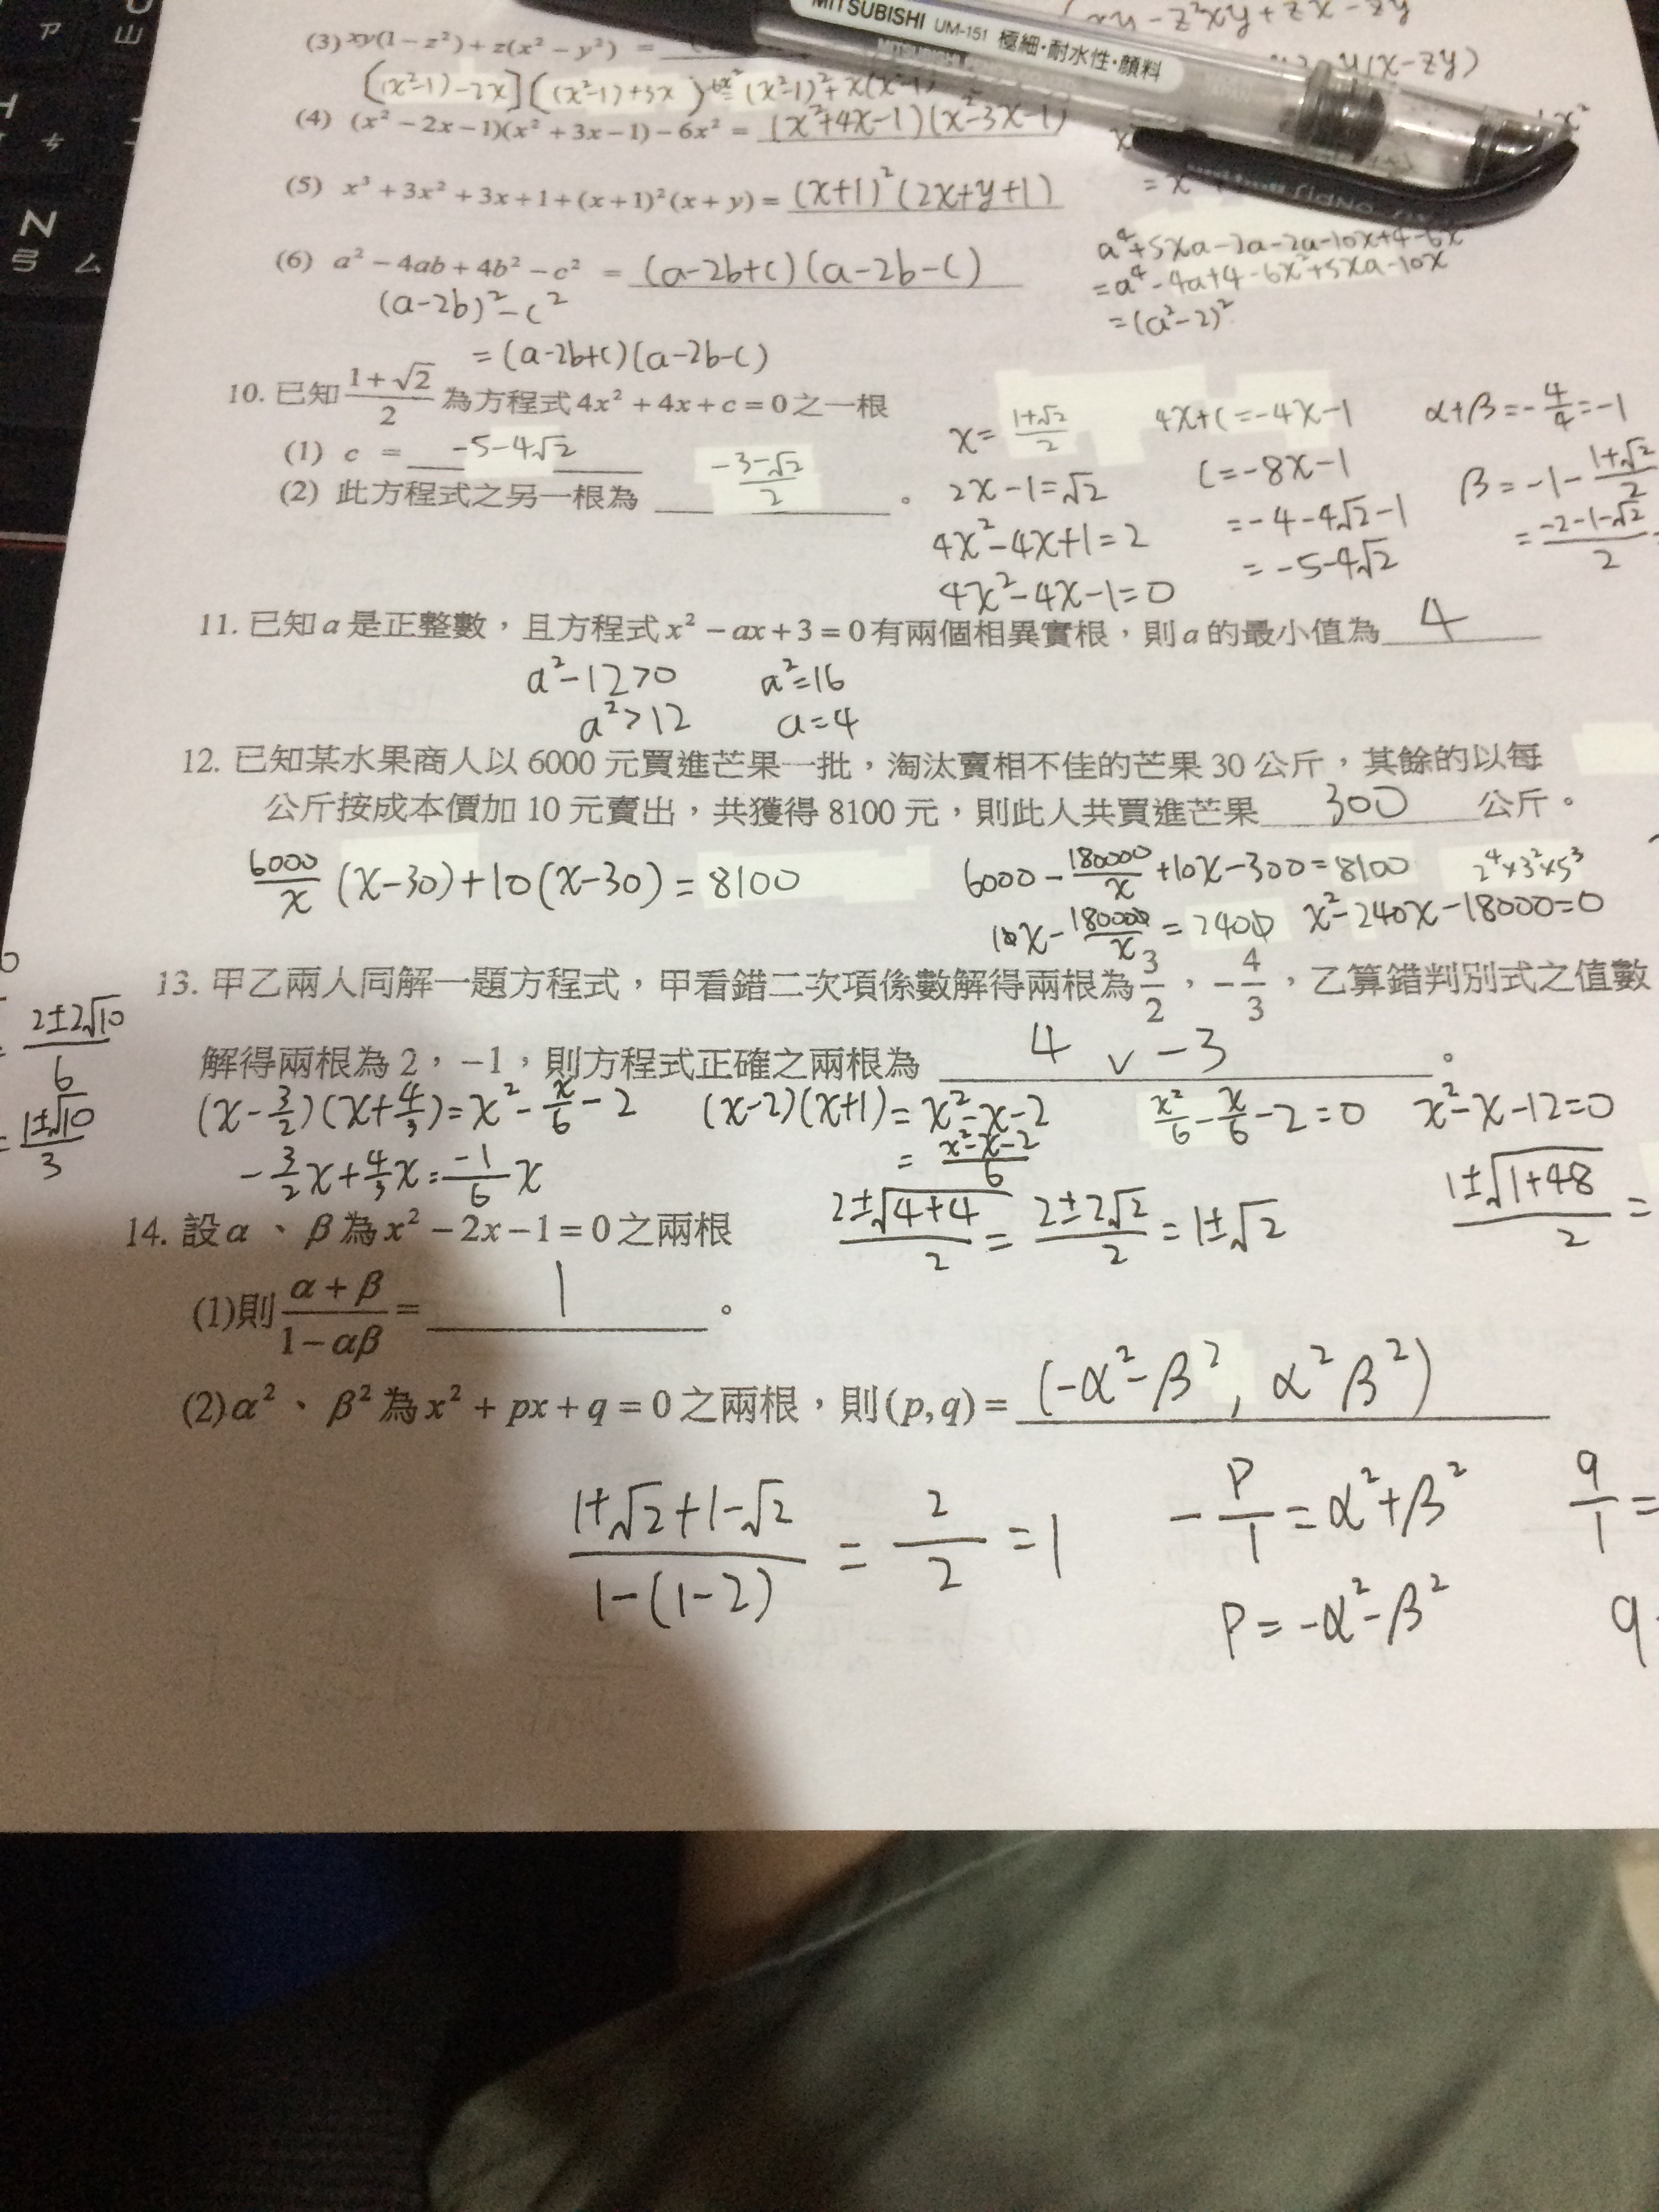 MITSUBISHI UM-151 極細·耐水性·顏料
(3) xy(1-z²)+z(x²-y²) =
[(x²-1)-2x][(x²-1)+3x]-6x²
(4) (x²-2x-1)(x²+3x-1)-6x² = (x²+4x-1)(x²-3x-1)
(5) x³+3x²+3x+1+(x+1)²(x+y)= (x+1)²(2x+y+1)
(6) a²-4ab+4b²-c² = (a-2b+c)(a-2b-c)
(a-2b)²-c²
=(a-2b+c)(a-2b-c)
a⁴+5xa-2a-2a-10x+4-6x
=a⁴-4a+4-6x²+5xa-10x
=(a²-2)²
10. 已知 (1+√2)/2 為方程式 4x²+4x+c=0 之一根
(1) c = -5-4√2
(2) 此方程式之另一根為 (-3-√2)/2 。
x=(1+√2)/2
2x-1=√2
4x²-4x+1=2
4x²-4x-1=0
4x+c=-4x-1
c=-8x-1
=-4-4√2-1
=-5-4√2
α+β=-4/4=-1
β=-1-(1+√2)/2
=(-2-1-√2)/2
11. 已知a是正整數，且方程式x²-ax+3=0有兩個相異實根，則a的最小值為 4
a²-12>0 a²=16
a²>12 a=4
12. 已知某水果商人以 6000 元買進芒果一批，淘汰賣相不佳的芒果 30 公斤，其餘的以每
公斤按成本價加 10 元賣出，共獲得 8100 元，則此人共買進芒果 300 公斤。
6000/x (x-30)+10(x-30)=8100
6000-180000/x+10x-300=8100 2⁴×3²×5³
10x-180000/x=2400 x²-240x-18000=0
13. 甲乙兩人同解一題方程式，甲看錯二次項係數解得兩根為 3/2，-4/3，乙算錯判別式之值數
解得兩根為 2，-1，則方程式正確之兩根為 4 ∨ -3 。
2±2√10/6
1±√10/3
(x-3/2)(x+4/3)=x²-x/6-2 (x-2)(x+1)=x²-x-2 x²/6-x/6-2=0 x²-x-12=0
-3/2x+4/3x=-1/6x =(x²-x-2)/6
(1±√(1+48))/2=
14. 設α、β為x²-2x-1=0之兩根 (2±√(4+4))/2=(2±2√2)/2=1±√2
(1)則 (α+β)/(1-αβ) = 1 。
(2)α²、β²為x²+px+q=0之兩根，則(p,q)= (-α²-β², α²β²)
(1+√2+1-√2)/(1-(1-2)) = 2/2 =1
-P/1=α²+β² q/1=
P=-α²-β² q